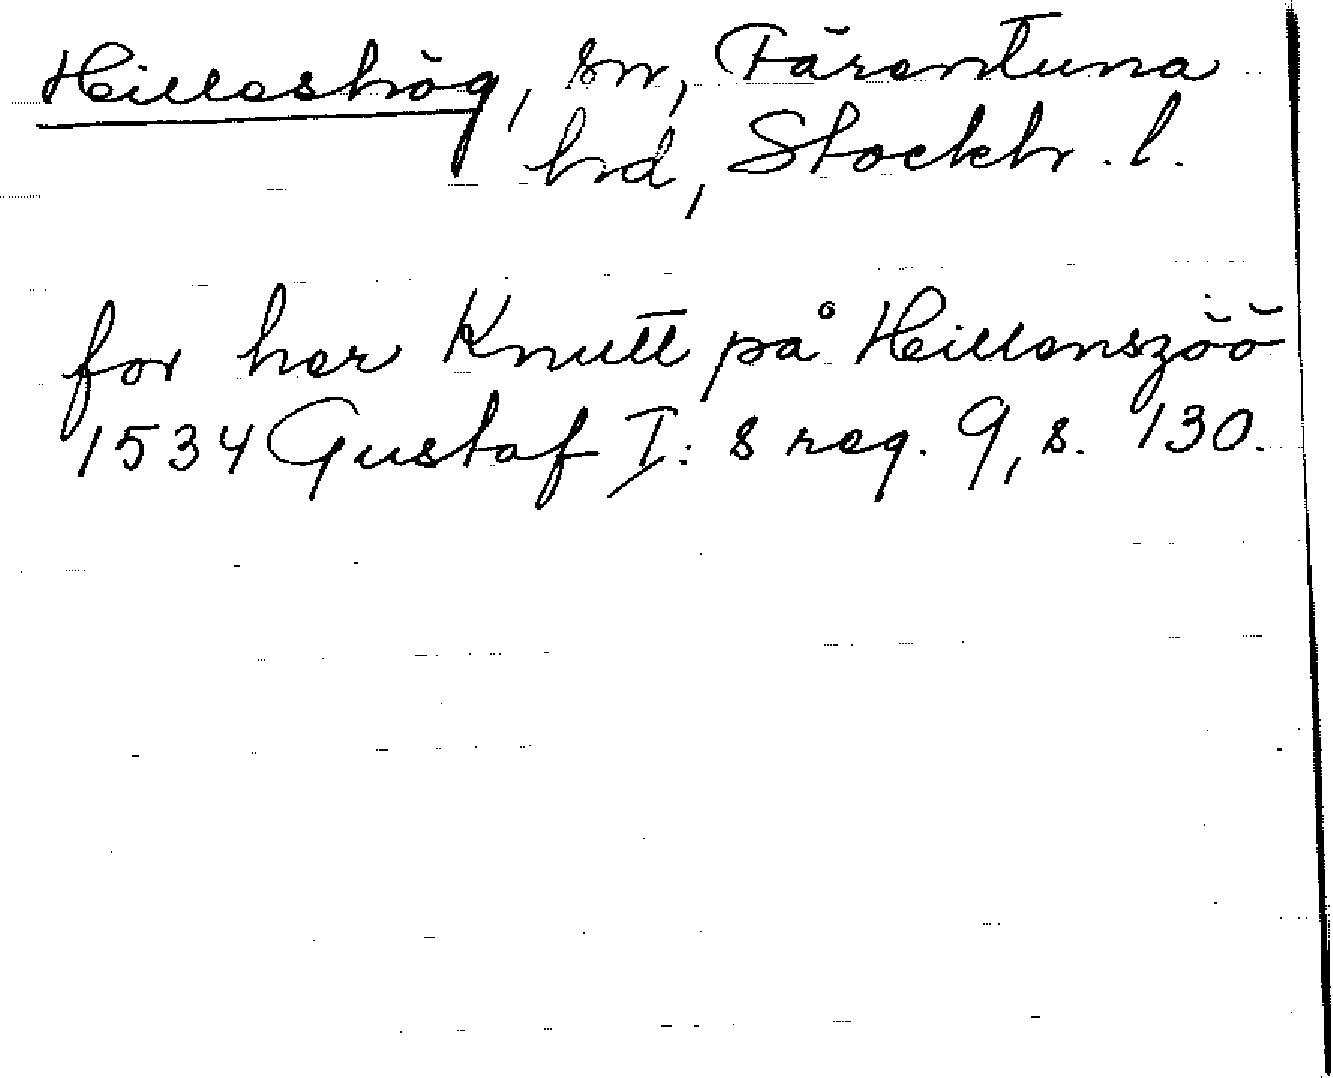 Hilleshög, sn, Färentuna
hd, Stockh. l.
for her Knutt på Hillenszöö
1534 Gustaf I: s reg. 9, s. 130.